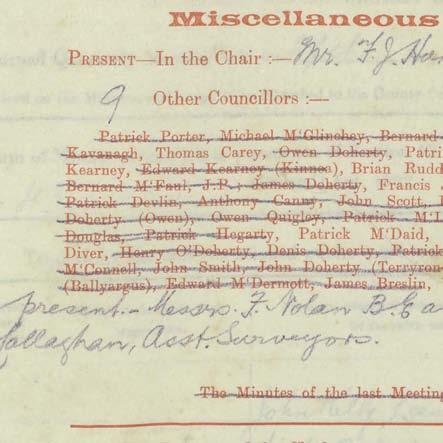 Miscellaneous
PRESENT—In the Chair :— Mr. F. J.
9 Other Councillors :—
Patrick Porter, Michael M'Glinchey, Bernard
Kavanagh, Thomas Carey, Owen Doherty, Patri
Kearney, Edward Kearney (Kinnea), Brian Rudd
Bernard M'Faul, J.P., James Doherty, Francis
Patrick Devlin, Anthony Canny, John Scott,
Doherty (Owen), Owen Quigley, Patrick M'D
Douglas, Patrick Hegarty, Patrick M'Daid,
Diver, Henry O'Doherty, Denis Doherty, Patrick
M'Connell, John Smith, John Doherty (Terryron
(Ballyargus), Edward M'Dermott, James Breslin,
present.- Messrs. F. Nolan B.E a
Callaghan, Asst. Surveyors.
The Minutes of the last Meeting